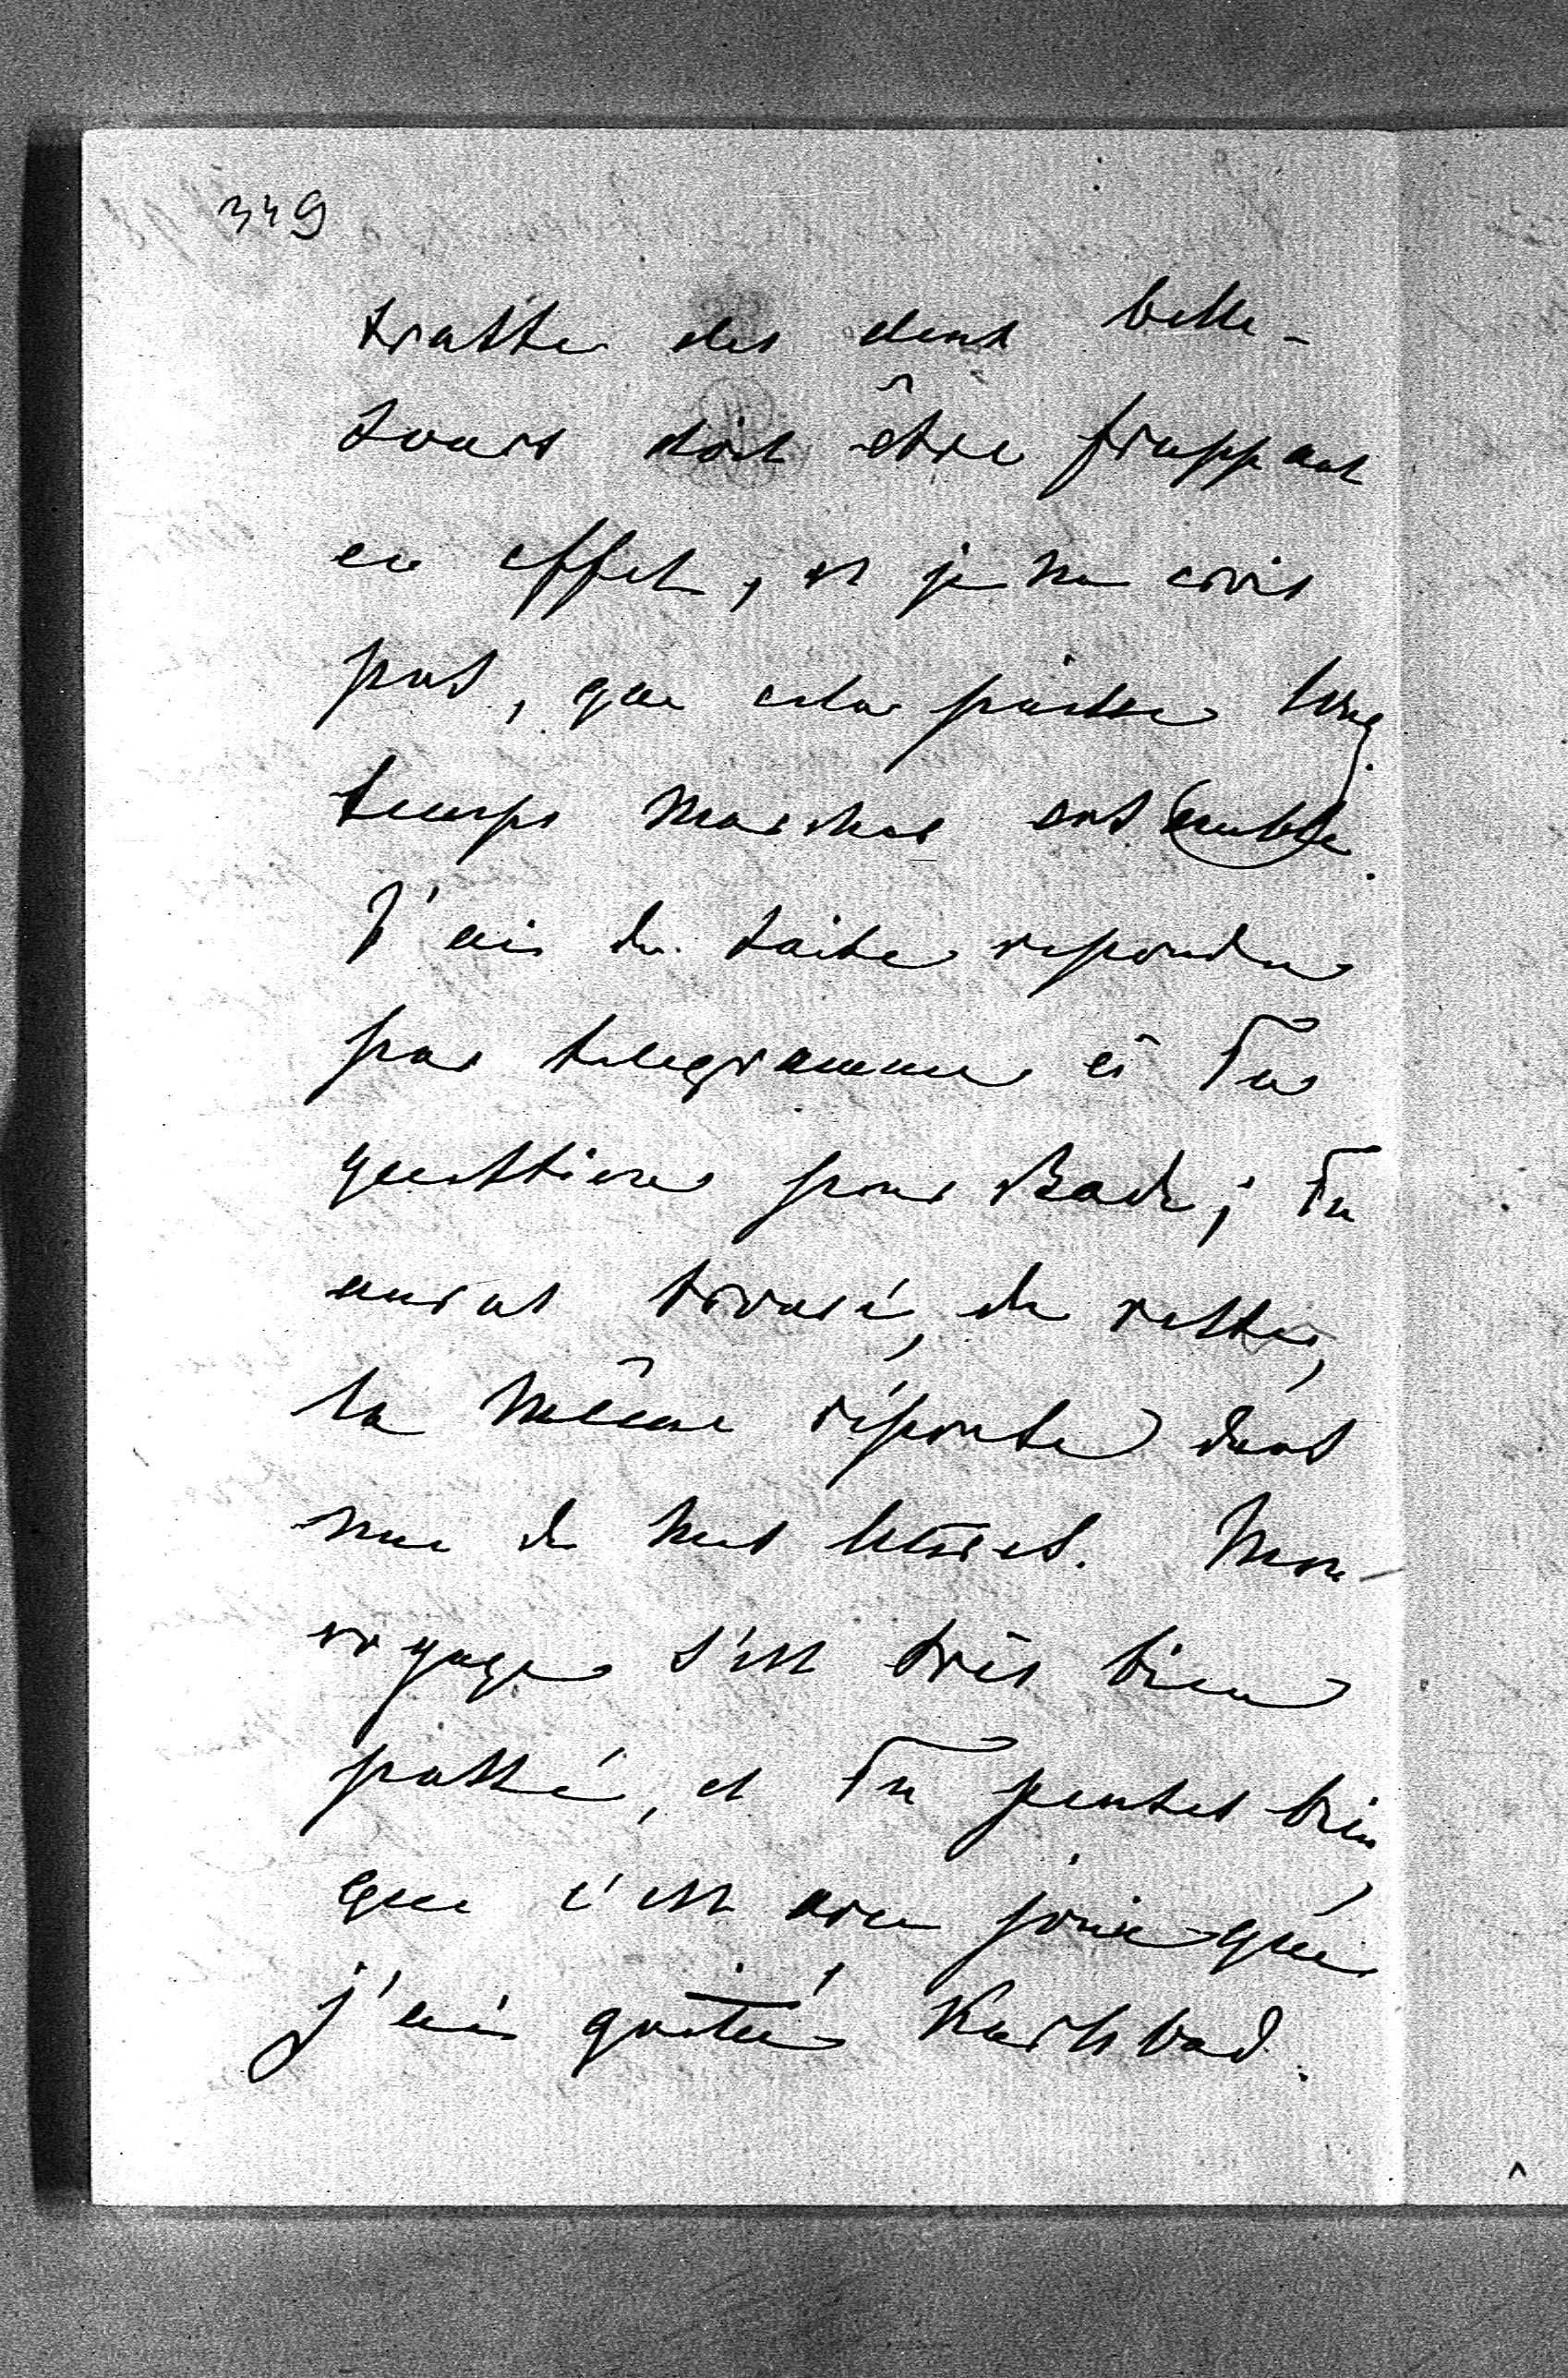 349
traste des deux belle-
soeurs doit être frappant
en effet, et je ne crois
pas, que cela puisse long
temps marcher ensemble.
J'ai de suite repondu
par telegramme à Ta
question pour Bade; Tu
auras trouvé, du reste,
la même réponse dans
une de mes lettres. Mon
voyage s'est très bien
passé, et Tu penses bien,
que c'est avec joie que
j'ai quitté Karlsbad.